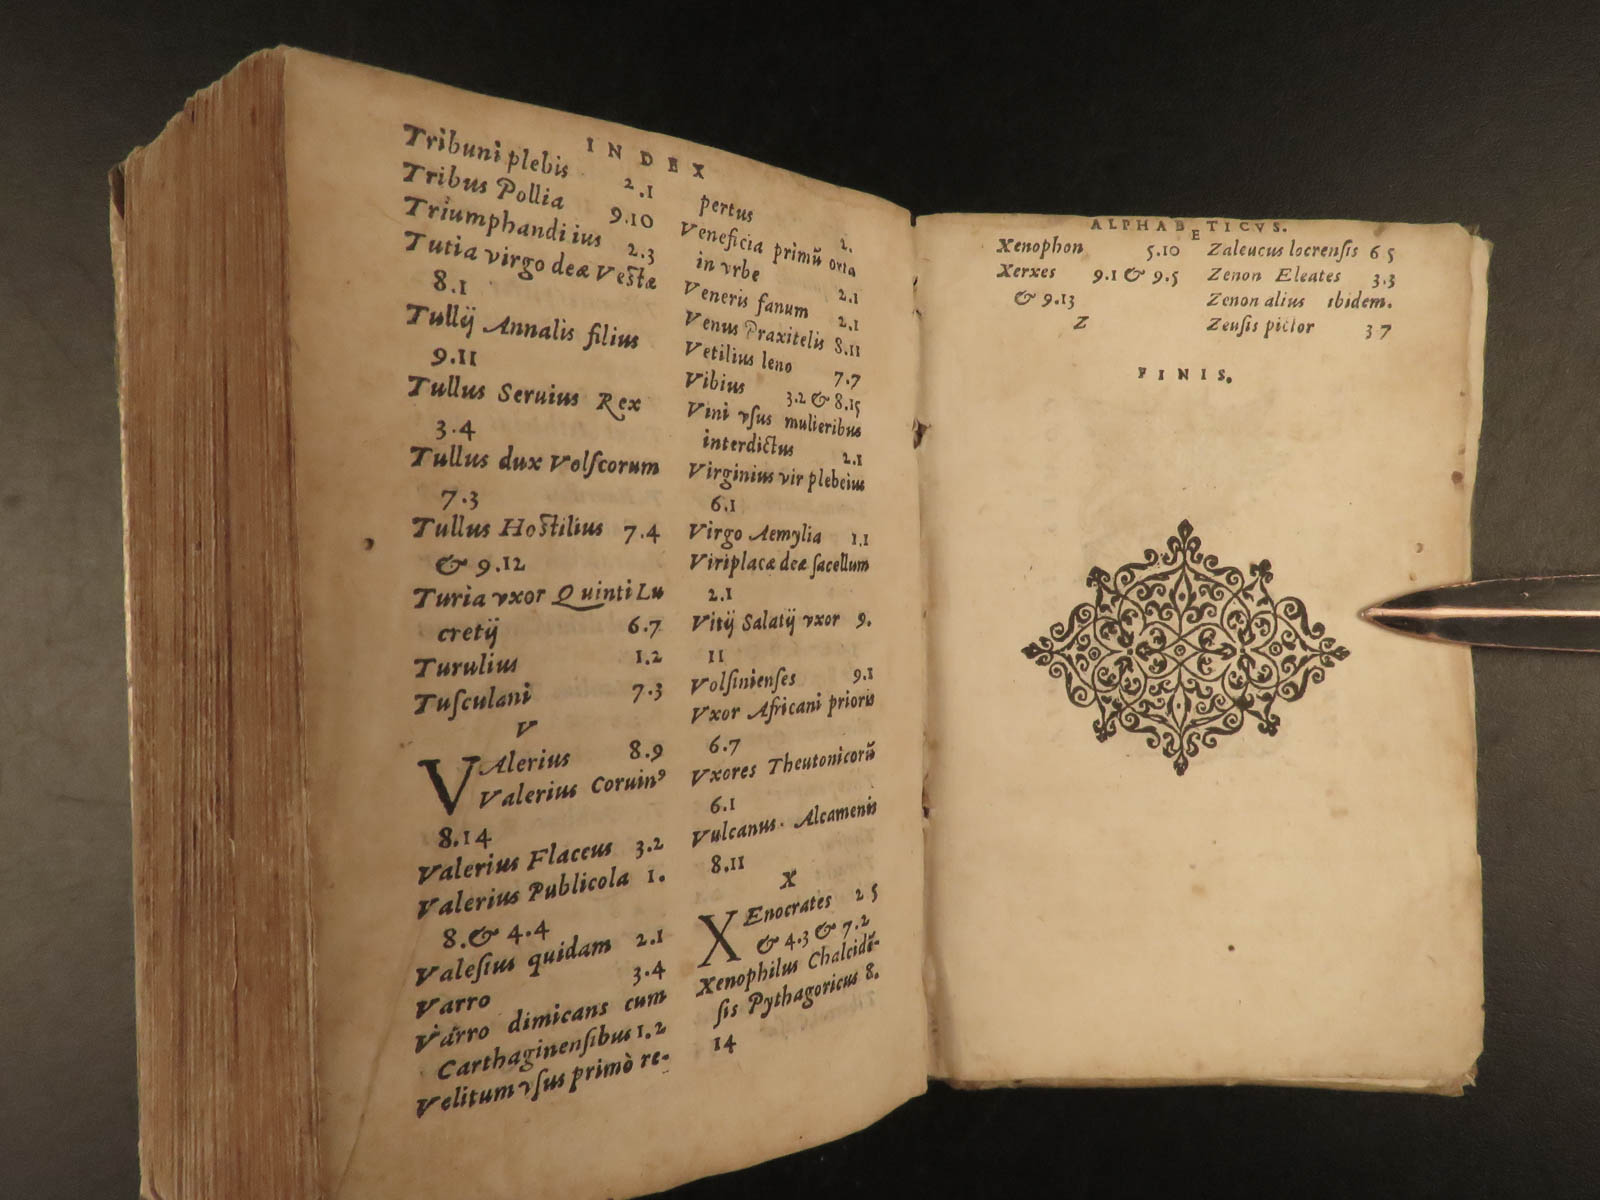 INDEX
Tribuni plebis 2.1
Tribus Pollia 9.10
Triumphandi ius 2.3
Tutia virgo deæ Vestæ
8.1
Tullij Annalis filius
9.11
Tullus Seruius Rex
3.4
Tullus dux Volſcorum
7.3
Tullus Hostilius 7.4
& 9.12
Turia vxor Quinti Lu
cretij 6.7
Turulius 1.2
Tuſculani 7.3
V
VAlerius 8.9
Valerius Coruinꝰ
8.14
Valerius Flaccus 3.2
Valerius Publicola 1.
8. & 4.4
Valeſius quidam 2.1
Varro 3.4
Varro dimicans cum
Carthaginenſibus 1.2
Velitum vſus primò re-
pertus 2.
Veneficia primũ orta
in vrbe 2.1
Veneris fanum 2.1
Venus Praxitelis 8.11
Vetilius leno 7.7
Vibius 3.2 & 8.15
Vini vſus mulieribus
interdictus 2.1
Virginius vir plebeius
6.1
Virgo Aemylia 1.1
Viriplacæ deæ ſacellum
2.1
Vitij Salatij vxor 9.
11
Volſinienſes 9.1
Vxor Africani prioris
6.7
Vxores Theutonicorũ
6.1
Vulcanus Alcamenis
8.11
X
XEnocrates 2 5
& 4.3 & 7.2
Xenophilus Chalcidẽ-
ſis Pythagoricus 8.
14
ALPHABETICVS.
Xenophon 5.10
Xerxes 9.1 & 9.5
& 9.13
Z
Zaleucus locrenſis 6 5
Zenon Eleates 3.3
Zenon alius ibidem.
Zeuſis pictor 3 7
FINIS.